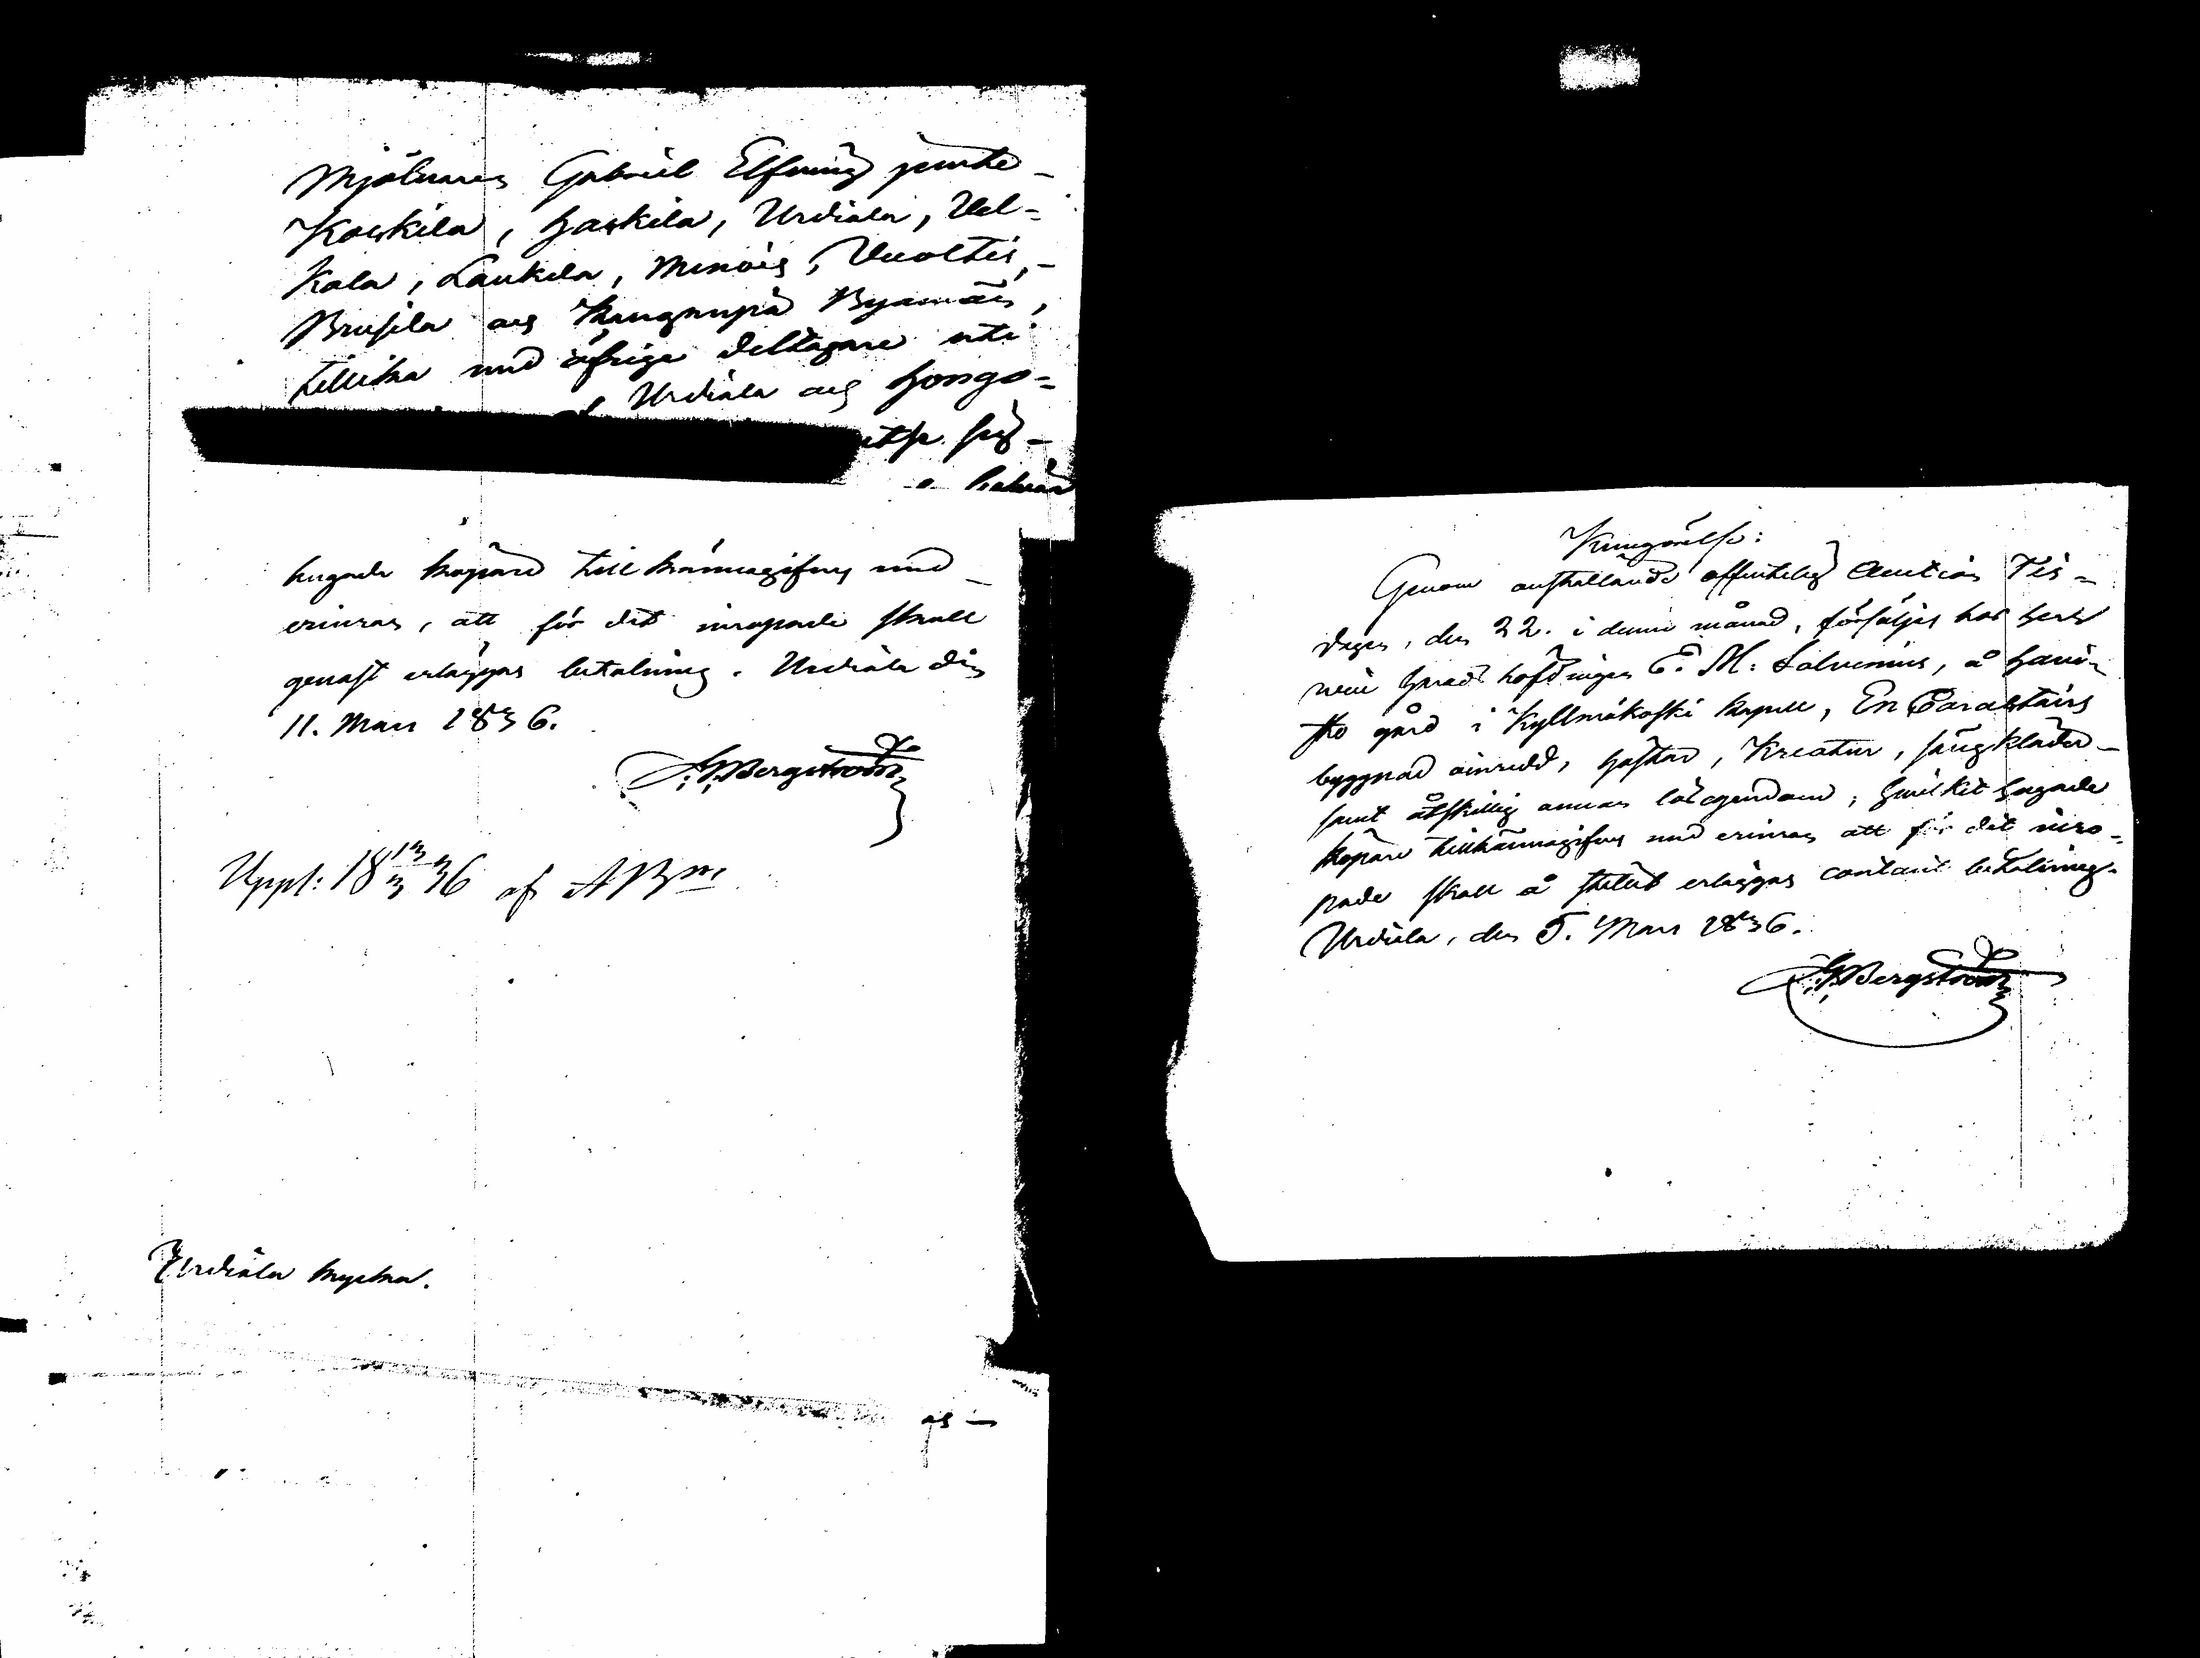 Mjölnaren Gabriel Elfving jemte
Koskila, Haskila, Urdiala, Vel=
kala, Laukela, Menois, Vuoltis,
Brusila och Kaugnupiä Byamän,
tillika med öfrige deltagare uti
Urdiala och Hongo=
hugade köpare till kännagifves med
erinran, att för det inropade skall
genast erläggas betalning. Urdiala den
11. Mars 1836.
Bergström
Uppl: 18 13/3 36 af ABm
Urdiala kyrka.
Kungörelse:
Genom anställande offentelig Auction Tis=
dagen, den 22. i denne månad, försäljes hos Herr
Härads höfdingen C. M: Salvenius, å Havi=
sto gård i Kyllmäkoski kapell, En Carastärs
byggnad oinredd, Hästar, Kreatur, sängkläder
samt åtskillig annan lösegendom; Hvilket hugade
köpare tillkännagifves med erinran att för det inro=
pade skall å stället erläggas contant betalning.
Urdiala, den 5. Mars 1836.
Bergström